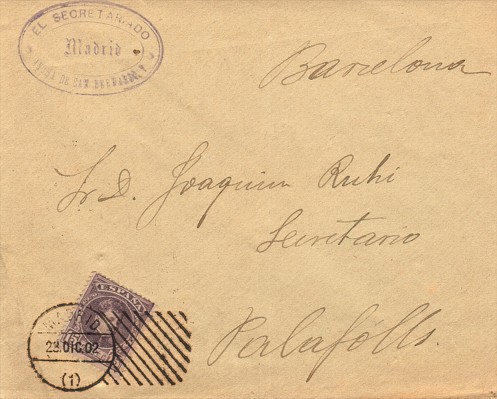 EL SECRETARIADO
Madrid
DE SAN BERNARDO
Barcelona
Sr. D. Joaquim Ruhi
Secretario
Palafolls.
ESPAÑA
MADRID
23.DIC.02
(1)